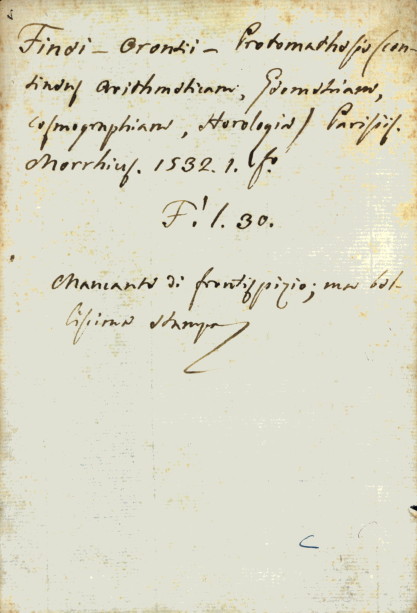 Finei - Orontii - Protomathesis (con-
tinens Arithmeticam, Geometriam,
Cosmographiam, Horologia) Parisiis.
Morrhius. 1532. 1. fo.
F! l. 30.
Mancante di frontispizio; ma bel-
lissima stampa